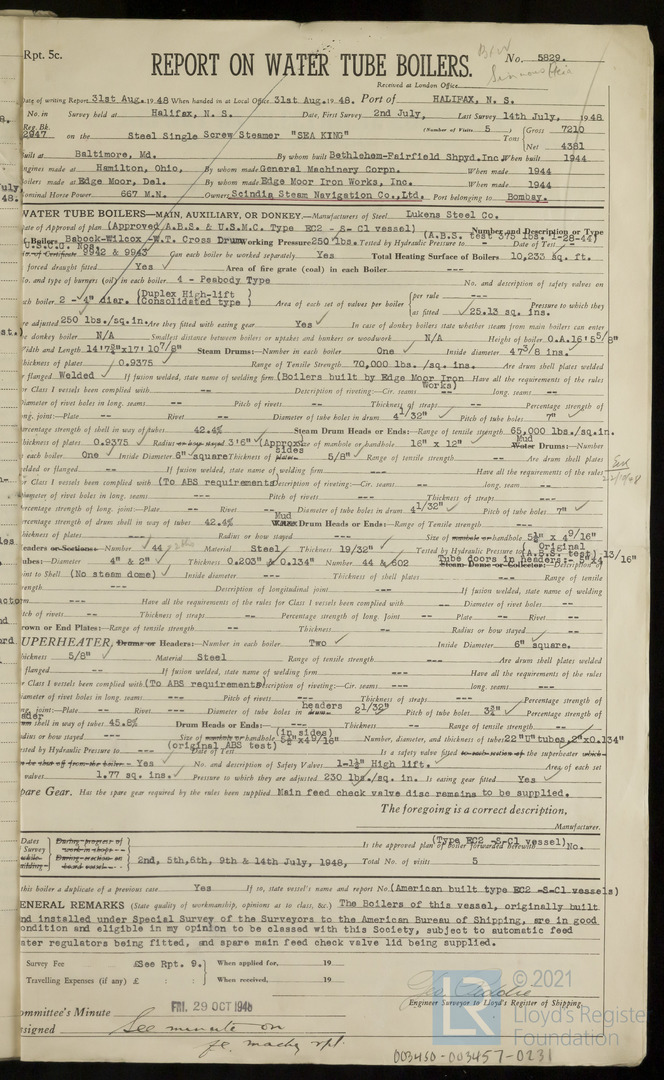 Rpt. 5c.
REPORT ON WATER TUBE BOILERS.
No. 5829.
Received at London Office
Date of writing Report 31st Aug. 1948 When handed in at Local Office 31st Aug. 1948. Port of HALIFAX, N. S.
No. in Survey held at Halifax, N. S. Date, First Survey 2nd July, Last Survey 14th July, 1948
Reg. Bk. (Number of Visits 5 ) Gross 7210
2947 on the Steel Single Screw Steamer "SEA KING" Tons
Net 4381
Built at Baltimore, Md. By whom built Bethlehem-Fairfield Shpyd.Inc When built 1944
Engines made at Hamilton, Ohio, By whom made General Machinery Corpn. When made 1944
Boilers made at Edge Moor, Del. By whom made Edge Moor Iron Works, Inc. When made 1944
Nominal Horse Power 667 M.N. Owners Scindia Steam Navigation Co.,Ltd. Port belonging to Bombay.
WATER TUBE BOILERS—MAIN, AUXILIARY, OR DONKEY.—Manufacturers of Steel Lukens Steel Co.
Date of Approval of plan (Approved A.B.S. & U.S.M.C. Type EC2 - S- C1 vessel) Number and Description or Type
Boilers Babcock-Wilcox -W.T. Cross Drum Working Pressure 250 lbs. Tested by Hydraulic Pressure to (A.B.S. test 375 lbs. 1-28-44) Date of Test
No. of Certificate 9942 & 9943 Can each boiler be worked separately Yes Total Heating Surface of Boilers 10,233 sq. ft.
forced draught fitted Yes Area of fire grate (coal) in each Boiler ---
No. and type of burners (oil) in each boiler 4 - Peabody Type No. and description of safety valves on
each boiler 2 - 4" diar. (Duplex High-lift Consolidated type ) Area of each set of valves per boiler per rule --- as fitted 25.13 sq. ins. Pressure to which they
are adjusted 250 lbs./sq.in. Are they fitted with easing gear Yes In case of donkey boilers state whether steam from main boilers can enter
the donkey boiler N/A Smallest distance between boilers or uptakes and bunkers or woodwork N/A Height of boiler O.A.16'5 5/8"
Width and Length 14'7¾"x17'10 7/8" Steam Drums:—Number in each boiler One Inside diameter 47 3/8 ins.
Thickness of plates 0.9375 Range of Tensile Strength 70,000 lbs. /sq. ins. Are drum shell plates welded
or flanged Welded If fusion welded, state name of welding firm (Boilers built by Edge Moor Iron Works) Have all the requirements of the rules
for Class I vessels been complied with --- Description of riveting:—Cir. seams -- long. seams --
Diameter of rivet holes in long. seams --- Pitch of rivets --- Thickness of straps --- Percentage strength of
long. joint:—Plate -- Rivet -- Diameter of tube holes in drum 4 1/32" Pitch of tube holes 7"
Percentage strength of shell in way of tubes 42.4% Steam Drum Heads or Ends:—Range of tensile strength 65,000 lbs./sq.in.
Thickness of plates 0.9375 Radius or how stayed 3'6" (Approx) Size of manhole or handhole 16" x 12" Mud Water Drums:—Number
in each boiler One Inside Diameter 6" square Thickness of plates sides 5/8" Range of tensile strength --- Are drum shell plates
welded or flanged -- If fusion welded, state name of welding firm --- Have all the requirements of the rules
for Class I vessels been complied with (To ABS requirements) Description of riveting:—Cir. seams --- long. seam ---
Diameter of rivet holes in long. seams --- Pitch of rivets --- Thickness of straps ---
Percentage strength of long. joint:—Plate -- Rivet -- Diameter of tube holes in drum 4 1/32" Pitch of tube holes 7"
Percentage strength of drum shell in way of tubes 42.4% Mud Water Drum Heads or Ends:—Range of Tensile strength ---
Thickness of plates --- Radius or how stayed --- Size of manhole or handhole 5¼" x 4 9/16"
Headers or Sections:—Number 44 Material Steel Thickness 19/32" Tested by Hydraulic Pressure to (Original A.B.S. test)
Tubes:—Diameter 4" & 2" Thickness 0.203" & 0.134" Number 44 & 602 Tube doors in headers:- 5"x4 13/16"
Steam Dome or Collector:—Description of
Joint to Shell (No steam dome) Inside diameter --- Thickness of shell plates --- Range of tensile
strength --- Description of longitudinal joint --- If fusion welded, state name of welding
firm --- Have all the requirements of the rules for Class I vessels been complied with --- Diameter of rivet holes --
Pitch of rivets --- Thickness of straps --- Percentage strength of long. Joint -- Plate -- Rivet --
Crown or End Plates:—Range of tensile strength --- Thickness -- Radius or how stayed --
SUPERHEATER, Drums or Headers:—Number in each boiler Two Inside Diameter 6" square.
Thickness 5/8" Material Steel Range of tensile strength --- Are drum shell plates welded
or flanged --- If fusion welded, state name of welding firm --- Have all the requirements of the
rules for Class I vessels been complied with (To ABS requirements) Description of riveting:—Cir. seams --- long. seams ---
Diameter of rivet holes in long. seams --- Pitch of rivets --- Thickness of straps --- Percentage strength of
long. joint:—Plate --- Rivet --- Diameter of tube holes in headers drum 2 1/32" Pitch of tube holes 3¾" Percentage strength of
drum shell in way of tubes 45.8% Drum Heads or Ends:— --- Thickness --- Range of tensile strength ---
Radius or how stayed --- Size of manhole or handhole (in sides) 5¼"x4 9/16" Number, diameter, and thickness of tubes 22 "U"tubes, 2"x0.134"
Tested by Hydraulic Pressure to (original ABS test) Date of Test --- Is a safety valve fitted to each section of the superheater which
can be shut off from the boiler - Yes No. and description of Safety Valves 1-1½" High lift. Area of each set
of valves 1.77 sq. ins. Pressure to which they are adjusted 230 lbs./sq. in. Is easing gear fitted Yes
Spare Gear. Has the spare gear required by the rules been supplied Main feed check valve disc remains to be supplied.
The foregoing is a correct description,
Manufacturer.
Dates of Survey while building
During progress of work in shops - -
During erection on board vessel - - -
2nd, 5th,6th, 9th & 14th July, 1948,
Is the approved plan of boiler forwarded herewith (Type EC2 -S-C1 vessel) No.
Total No. of visits 5
Is this boiler a duplicate of a previous case Yes If so, state vessel's name and report No. (American built type EC2 -S-C1 vessels)
GENERAL REMARKS (State quality of workmanship, opinions as to class, &c.) The Boilers of this vessel, originally built
and installed under Special Survey of the Surveyors to the American Bureau of Shipping, are in good
condition and eligible in my opinion to be classed with this Society, subject to automatic feed
water regulators being fitted, and spare main feed check valve lid being supplied.
Survey Fee £See Rpt. 9. When applied for, 19
Travelling Expenses (if any) £ : : When received, 19
Engineer Surveyor to Lloyd's Register of Shipping.
Committee's Minute FRI. 29 OCT 1948
Assigned See minute on
fe. machy rpt.
© 2021
Lloyd's Register
Foundation
003450-003457-0231